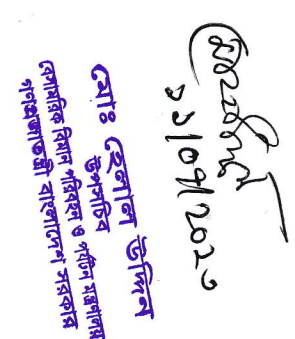 ১১/০৭/২০২৩
মোঃ হেলাল উদ্দিন
উপসচিব
বেসামরিক বিমান পরিবহন ও পর্যটন মন্ত্রণালয়
গণপ্রজাতন্ত্রী বাংলাদেশ সরকার